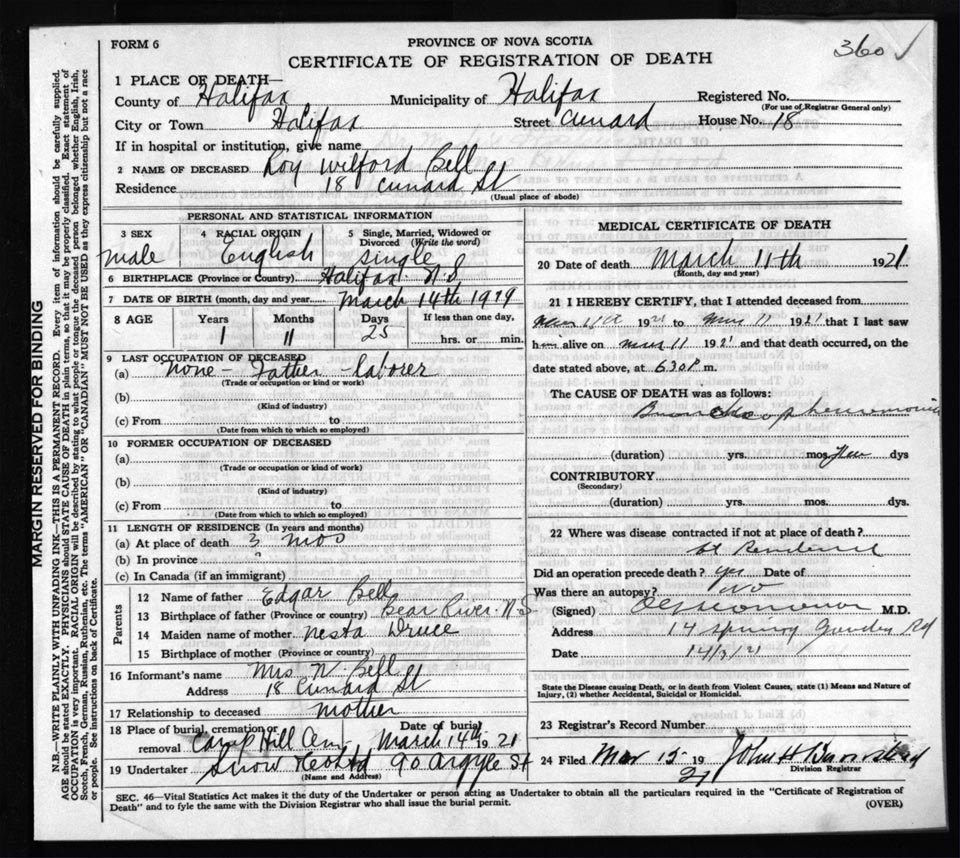 FORM 6
PROVINCE OF NOVA SCOTIA
360 ✓
CERTIFICATE OF REGISTRATION OF DEATH
1 PLACE OF DEATH—
County of Halifax Municipality of Halifax Registered No.
(For use of Registrar General only)
City or Town Halifax Street Cunard House No. 18
If in hospital or institution, give name
2 NAME OF DECEASED Roy Wilford Bell
Residence 18 Cunard St
(Usual place of abode)
PERSONAL AND STATISTICAL INFORMATION
3 SEX 4 RACIAL ORIGIN 5 Single, Married, Widowed or Divorced (Write the word)
male English single
6 BIRTHPLACE (Province or Country) Halifax N.S
7 DATE OF BIRTH (month, day and year) March 14th 1919
8 AGE Years Months Days If less than one day,
1 11 25 hrs. or min.
9 LAST OCCUPATION OF DECEASED
(a) None - Father - Laborer
(Trade or occupation or kind or work)
(b)
(Kind of industry)
(c) From to
(Date from which to which so employed)
10 FORMER OCCUPATION OF DECEASED
(a)
(Trade or occupation or kind or work)
(b)
(Kind of industry)
(c) From to
(Date from which to which so employed)
11 LENGTH OF RESIDENCE (In years and months)
(a) At place of death 3 mos
(b) In province "
(c) In Canada (if an immigrant)
Parents
12 Name of father Edgar Bell
13 Birthplace of father (Province or country) Bear River N.S
14 Maiden name of mother Nesta Druce
15 Birthplace of mother (Province or country)
16 Informant's name Mrs N. Bell
Address 18 Cunard St
17 Relationship to deceased mother
18 Place of burial, cremation or removal Camp Hill Cem Date of burial March 14th 1921
19 Undertaker Snow & Co Ltd 90 Argyle St
(Name and Address)
MEDICAL CERTIFICATE OF DEATH
20 Date of death March 11th 1921
(Month, day and year)
21 I HEREBY CERTIFY, that I attended deceased from
1921 to 11 1921 that I last saw
h alive on 11 1921 and that death occurred, on
date stated above, at 6.30 P m.
The CAUSE OF DEATH was as follows:
Broncho pneumonia
(duration) yrs. mos. few dys
CONTRIBUTORY
(Secondary)
(duration) yrs. mos. dys.
22 Where was disease contracted if not at place of death?
at Residence
Did an operation precede death? Date of
Was there an autopsy? No
(Signed) M.D.
Address 14 Spring Garden Rd
Date 14/3/21
State the Disease causing Death, or in death from Violent Causes, state (1) Means and Nature of Injury, (2) whether Accidental, Suicidal or Homicidal.
23 Registrar's Record Number
24 Filed Mar 15 1921 John H
Division Registrar
SEC. 46—Vital Statistics Act makes it the duty of the Undertaker or person acting as Undertaker to obtain all the particulars required in the "Certificate of Registration of
Death" and to fyle the same with the Division Registrar who shall issue the burial permit.
(OVER)
MARGIN RESERVED FOR BINDING
N.B.—WRITE PLAINLY WITH UNFADING INK—THIS IS A PERMANENT RECORD. Every item of information should be carefully supplied.
AGE should be stated EXACTLY. PHYSICIANS should STATE CAUSE OF DEATH in plain terms, so that it may be properly classified. Exact statement of
OCCUPATION is very important. RACIAL ORIGIN will be described by stating to what people or tongue the deceased person belonged whether English, Irish,
Scotch, French, German, Russian, Ruthenian, etc. The terms "AMERICAN" OR "CANADIAN" MUST NOT BE USED as they express citizenship but not a race
or people. See instructions on back of Certificate.